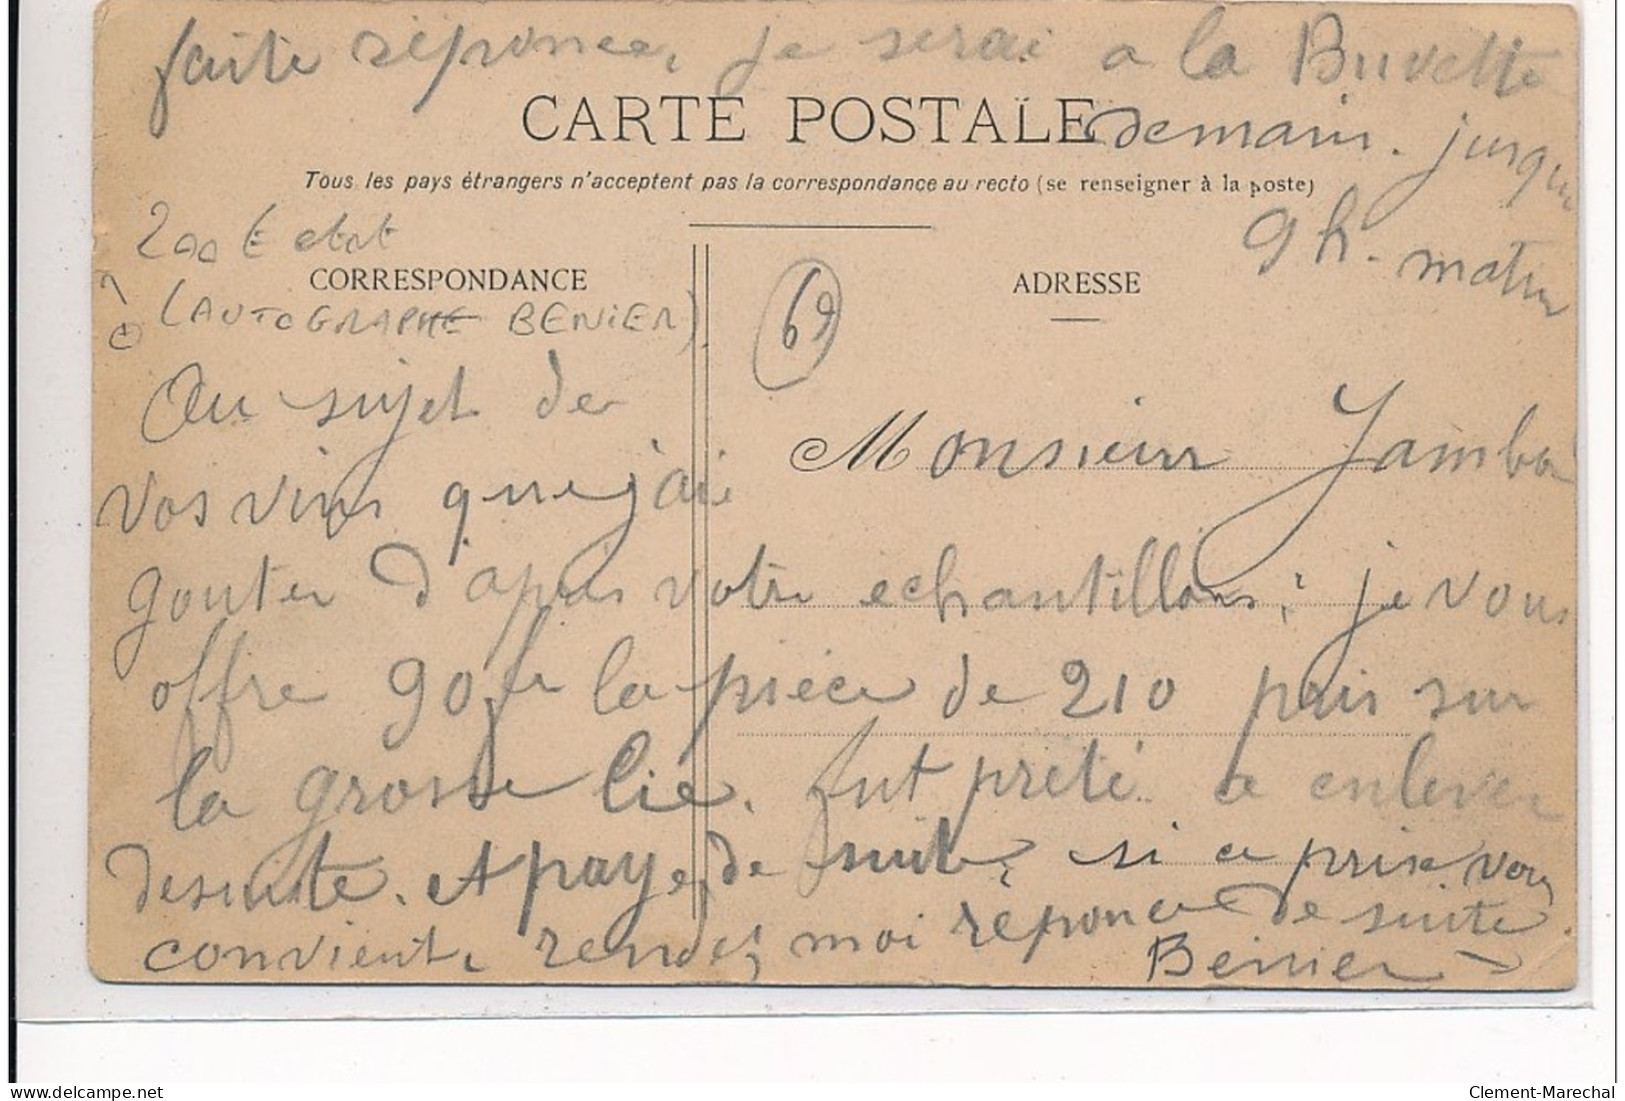 faite réponce, je serai a la Buvette
demain. jusqu
9 h. matin
CARTE POSTALE
Tous les pays étrangers n'acceptent pas la correspondance au recto (se renseigner à la poste)
200 E etat
CORRESPONDANCE
ADRESSE
(AUTOGRAPHE BENIER)
69
Au sujet de
Monsieur Jambo
vos vins que j'ai
gouter d'apres votre echantillons; je vous
offre 90 fr la pièce de 210 pris sur
la grosse lie. fut prété a enlever
desuite. et paye de suite, si ce prix vous
convient, rendez moi réponce de suite.
Benier
delcampe.net
Clement-Marechal